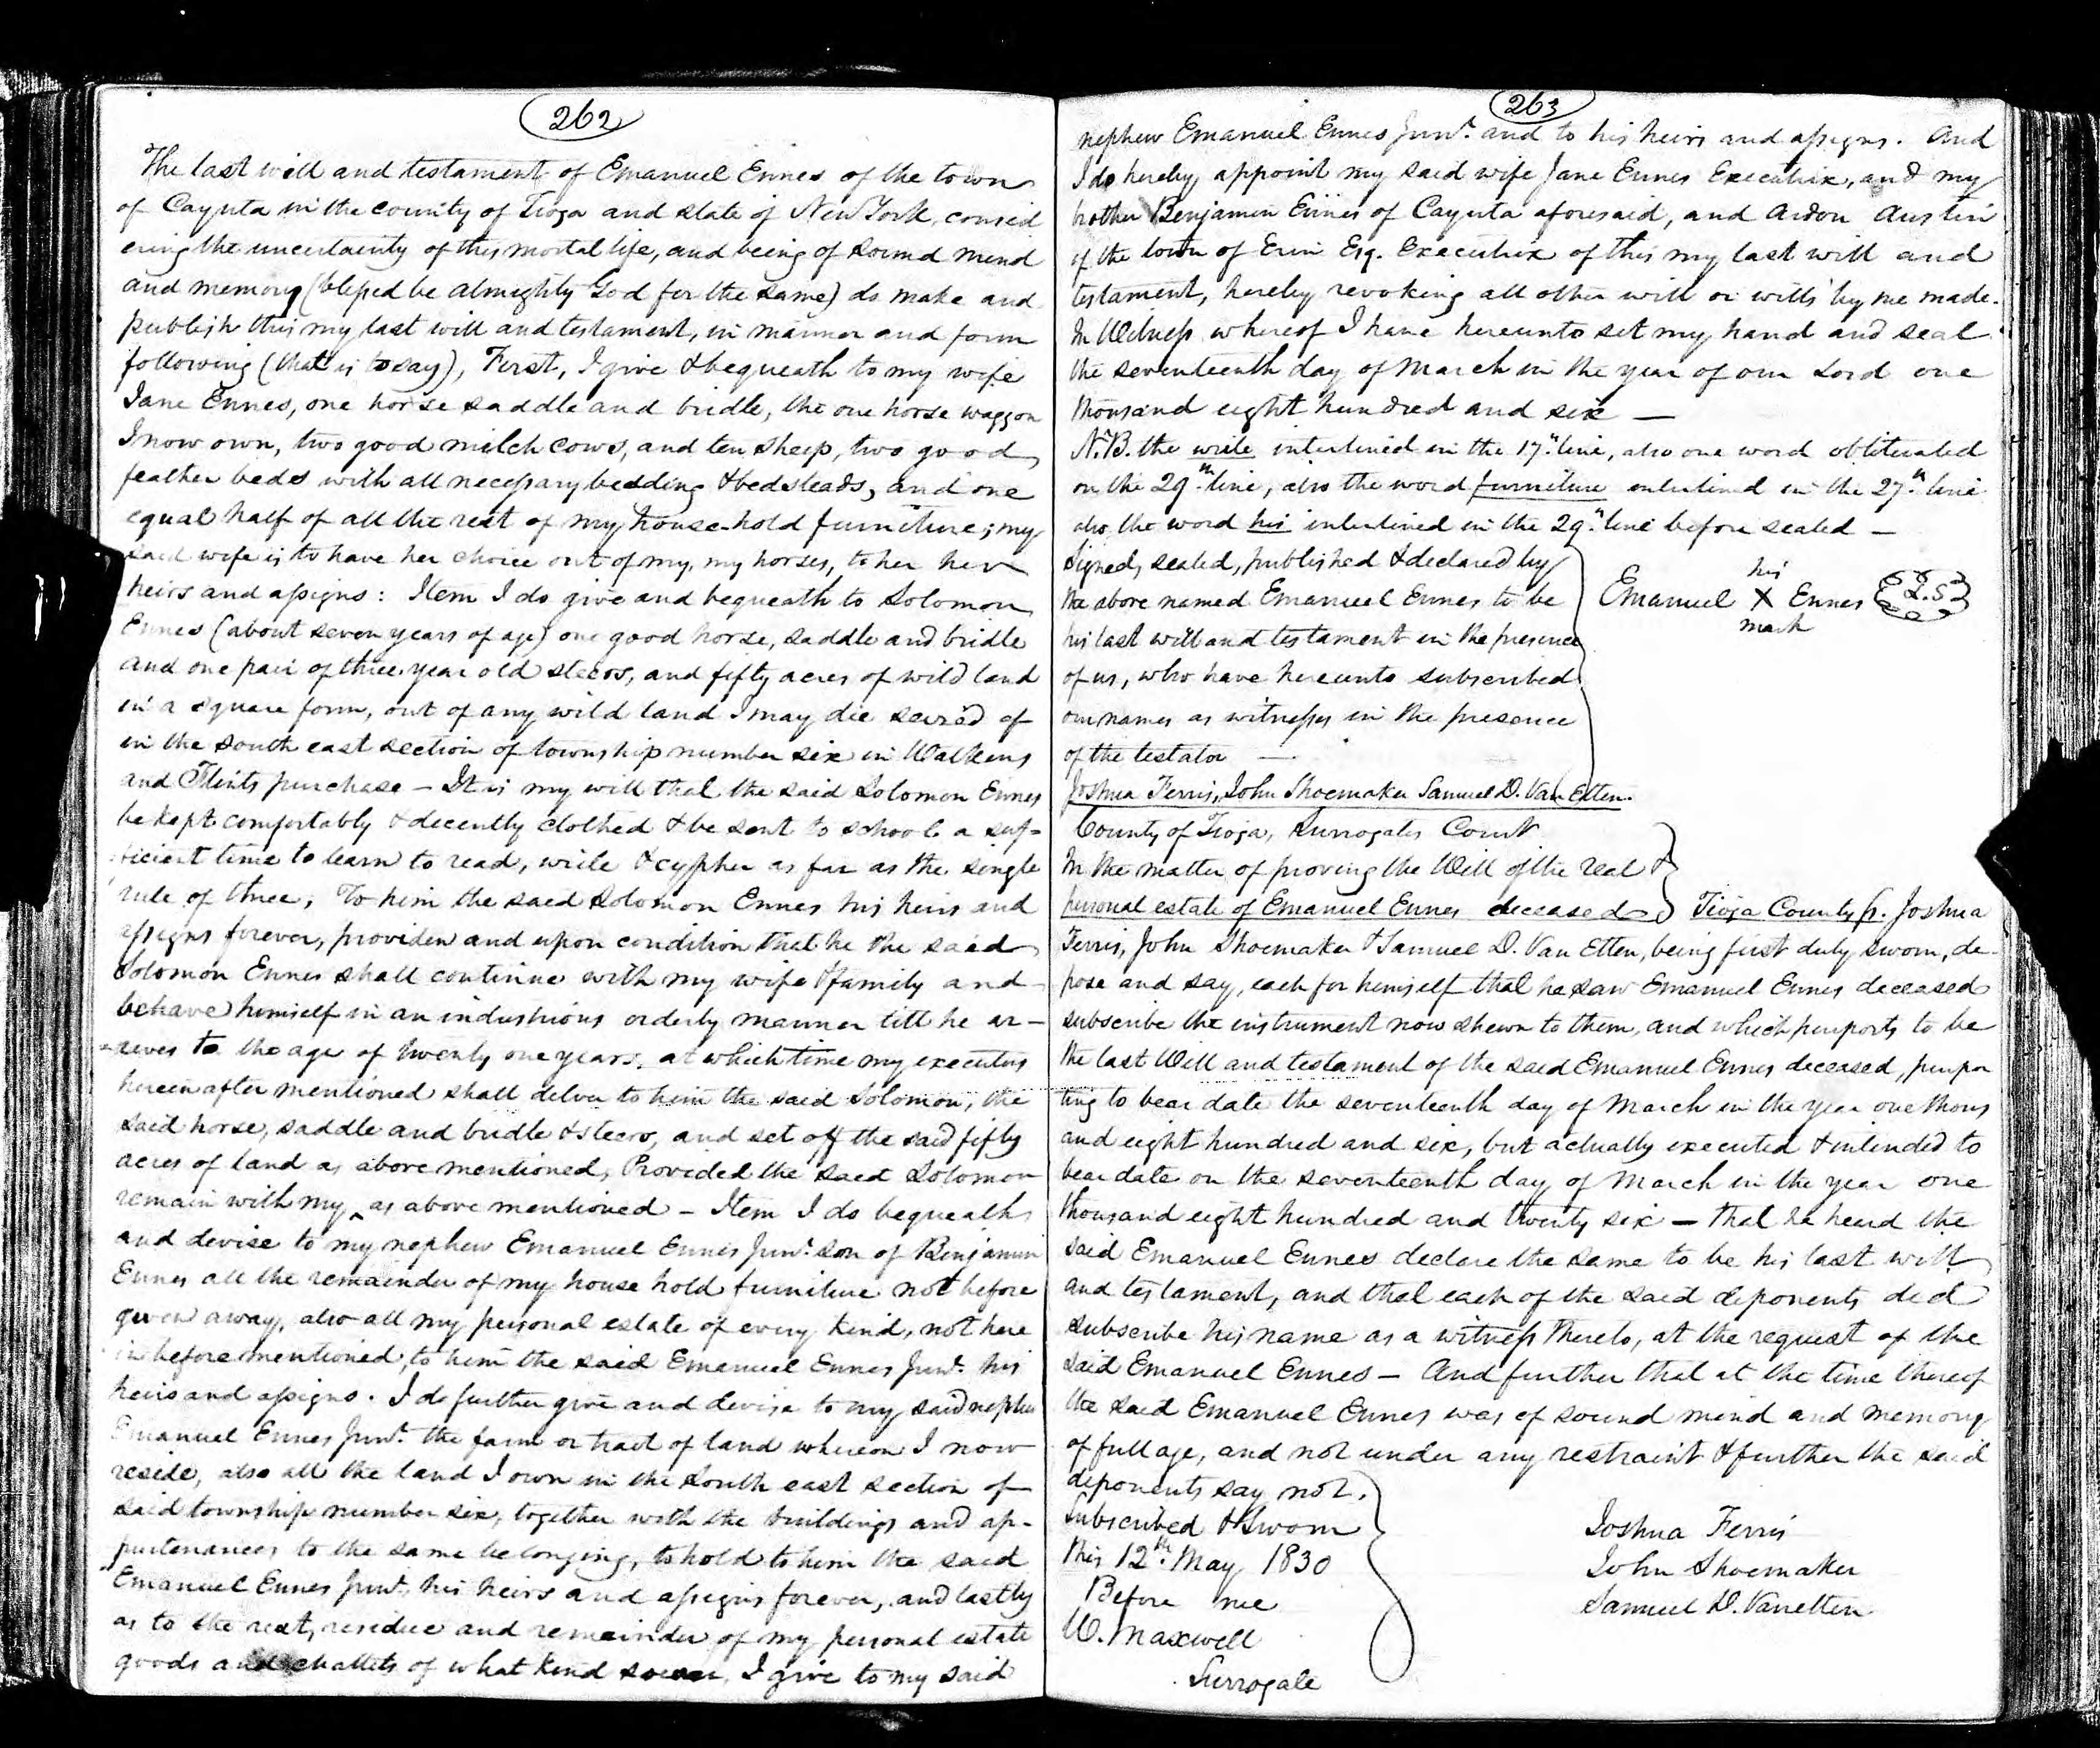 262
The last will and testament of Emanuel Ennes of the town
of Cayuta in the county of Tioga and state of New York, consid
ering the uncertainty of this mortal life, and being of sound mind
and memory (blessed be almighty God for the same) do make and
publish this my last will and testament, in manner and form
following (that is to say), First, I give & bequeath to my wife
Jane Ennes, one horse saddle and bridle, the one horse waggon
I now own, two good milch cows, and ten sheep, two good
feather beds with all necessary bedding & bedsteads, and one
equal half of all the rest of my house-hold furniture; my
said wife is to have her choice out of my, my horses, to her her
heirs and assigns: Item I do give and bequeath to Solomon
Ennes (about seven years of age) one good horse, saddle and bridle
and one pair of three year old steers, and fifty acres of wild land
in a square form, out of any wild land I may die seized of
in the south east section of township number six in Watkins
and Flints purchase - It is my will that the said Solomon Ennes
be kept comfortably & decently clothed & be sent to school a suf-
ficient time to learn to read, write & cypher as far as the single
rule of three; To him the said Solomon Ennes his heirs and
assigns forever, providen and upon condition that he the said
Solomon Ennes shall continue with my wife & family and
behave himself in an industrious orderly manner till he ar-
rives to the age of twenty one years. at which time my executors
hereinafter mentioned shall deliver to him the said Solomon, the
said horse, saddle and bridle & steers, and set off the said fifty
acres of land as above mentioned, Provided the said Solomon
remain with my ‸ as above mentioned - Item I do bequeath
and devise to my nephew Emanuel Ennes Junr. son of Benjamin
Ennes all the remainder of my house hold furniture not before
given away, also all my personal estate of every kind, not here
in before mentioned, to him the said Emanuel Ennes Junr. his
heirs and assigns. I do further give and devise to my said nephew
Emanuel Ennes Junr. the farm or tract of land whereon I now
reside, also all the land I own in the South east section of
said township number six, together with the buildings and ap-
purtenances to the same belonging, to hold to him the said
Emanuel Ennes Junr. his heirs and assigns forever, and lastly
as to the rest, residue and remainder of my personal estate
goods and chattels of what kind soever, I give to my said
263
nephew Emanuel Ennes Junr. and to his heirs and assigns. And
I do hereby appoint my said wife Jane Ennes Executrix, and my
brother Benjamin Ennes of Cayuta aforesaid, and Ardon Austin
of the town of Erin Esq. Executrix of this my last will and
testament, hereby revoking all other will or wills by me made.
In Witness whereof I have hereunto set my hand and seal
the seventeenth day of March in the year of our Lord one
thousand eight hundred and six —
N.B. the write interlined in the 17th line, also one word obliterated
on the 29th line, also the word furniture interlined in the 27th line
also the word his interlined in the 29th line before sealed -
Signed, sealed, published & declared by
the above named Emanuel Ennes to be
his last will and testament in the presence
of us, who have hereunto subscribed
our names as witnesses in the presence
of the testator —
his
Emanuel X Ennes L.S
mark
Joshua Ferris, John Shoemaker Samuel D. Van Etten.
County of Tioga, Surrogates Court
In the matter of proving the Will of the real &
personal estate of Emanuel Ennes deceased Tioga County ss. Joshua
Ferris, John Shoemaker & Samuel D. Van Etten, being first duly sworn, de-
pose and say, each for himself that he saw Emanuel Ennes deceased
subscribe the instrument now shewn to them, and which purports to be
the last Will and testament of the said Emanuel Ennes deceased, purpor
ting to bear date the seventeenth day of March in the year one thous
and eight hundred and six, but actually executed & intended to
bear date on the seventeenth day of March in the year one
thousand eight hundred and twenty six - that he heard the
said Emanuel Ennes declare the same to be his last will
and testament, and that each of the said deponents did
subscribe his name as a witness thereto, at the request of the
said Emanuel Ennes - And further that at the time thereof
the said Emanuel Ennes was of sound mind and memory
of full age, and not under any restraint & further the said
deponents say not.
Subscribed & Sworn
this 12th May 1830
Before me
W. Maxwell
Surrogate
Joshua Ferris
John Shoemaker
Samuel D. Vanetten